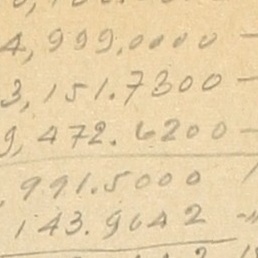 4,999.0000 -
3,151.7300 -
9,472.6200 -
,991.5000
143.9642 -